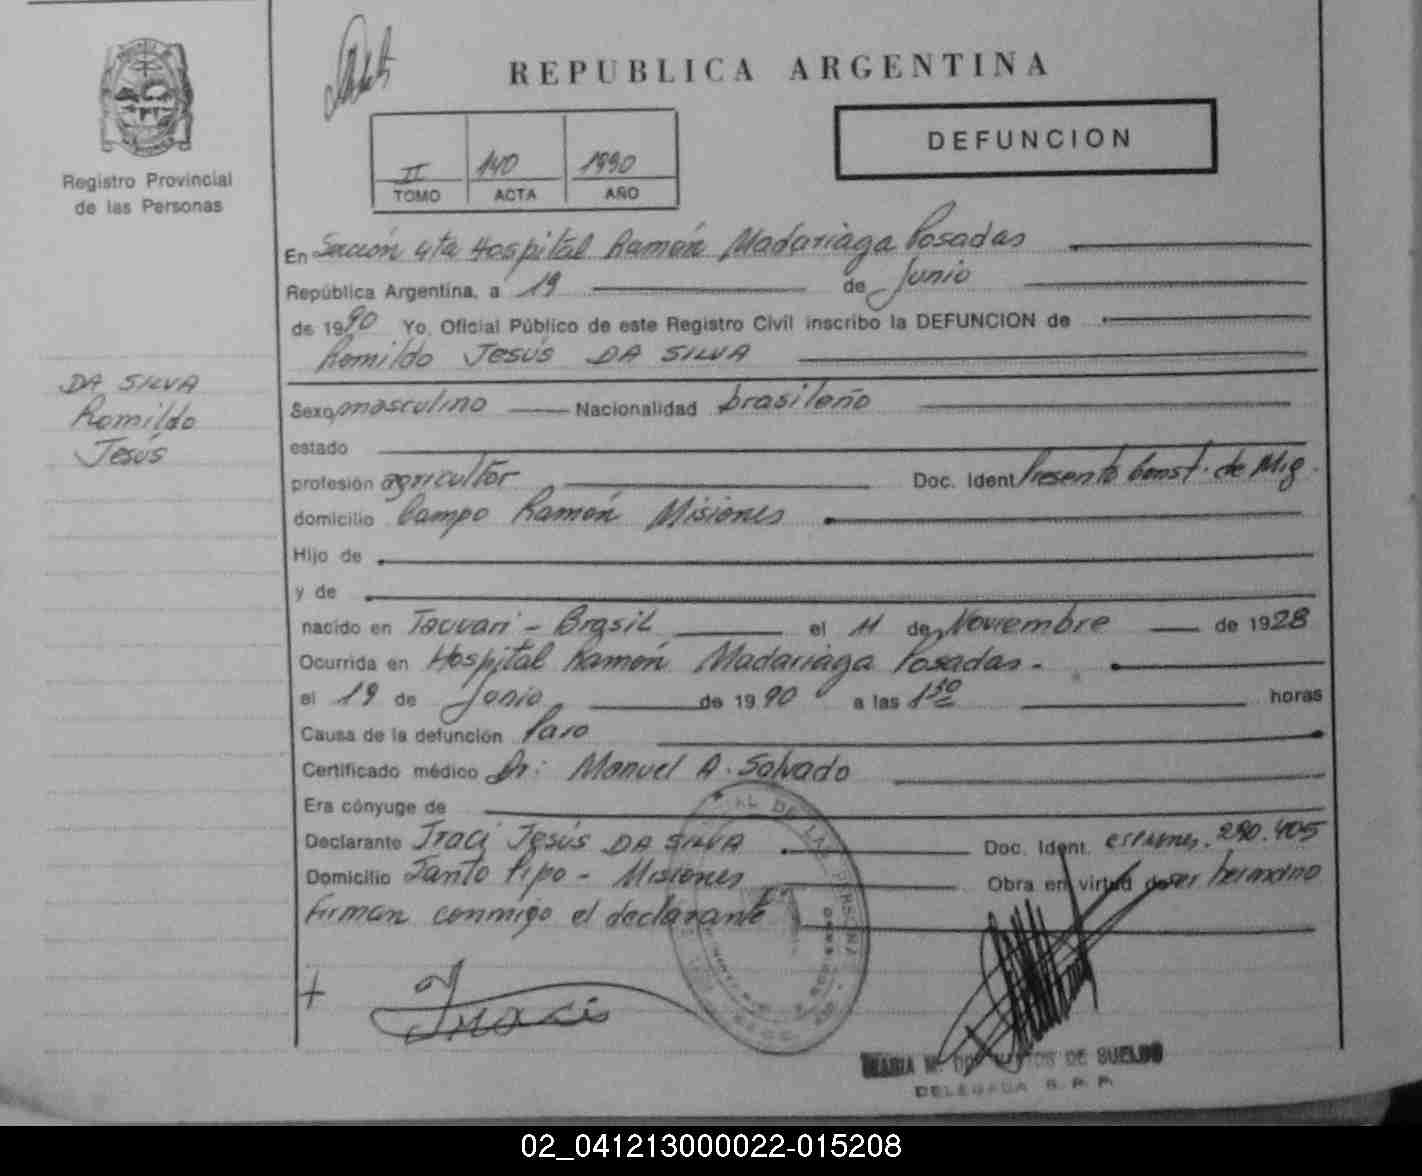 REPUBLICA ARGENTINA
DEFUNCION
II 140 1990
TOMO ACTA AÑO
Registro Provincial
de las Personas
En Sección 4ta Hospital Ramón Madariaga Posadas
República Argentina, a 19 de Junio
de 1990 Yo, Oficial Público de este Registro Civil inscribo la DEFUNCION de
Romildo Jesús DA SILVA
DA SILVA
Romildo
Jesús
Sexo masculino Nacionalidad brasileño
estado
profesión agricultor Doc. Ident Presentó Const. de Mig.
domicilio Campo Ramón Misiones
Hijo de
y de
nacido en Brasil el 11 de Noviembre de 1928
Ocurrida en Hospital Ramón Madariaga Posadas.
el 19 de Junio de 1990 a las 1 30 horas
Causa de la defunción Paro
Certificado médico Dr: Manuel A. Salvado
Era cónyuge de
Declarante Iraci Jesús DA SILVA Doc. Ident. 290.405
Domicilio Santo Pipo - Misiones Obra en virtud de ser hermano
Firman conmigo el declarante
Iraci
DE LAS PERSONAS
MARIA M. DE SUELDO
DELEGADA R. P. P.
02_041213000022-015208